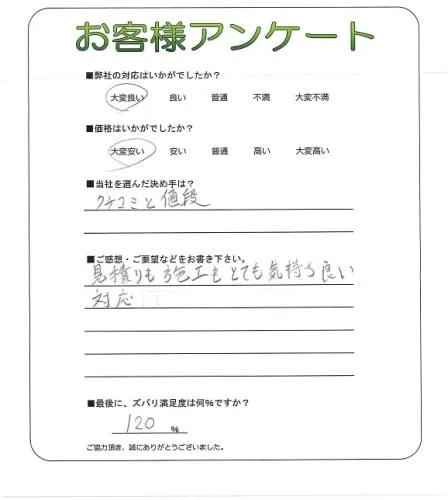 お客様アンケート
■弊社の対応はいかがでしたか？
大変良い 良い 普通 不満 大変不満
■価格はいかがでしたか？
大変安い 安い 普通 高い 大変高い
■当社を選んだ決め手は？
クチコミと値段
■ご感想・ご要望などをお書き下さい。
見積りも施工もとても気持ち良い
対応
■最後に、ズバリ満足度は何％ですか？
120 ％
ご協力頂き、誠にありがとうございました。